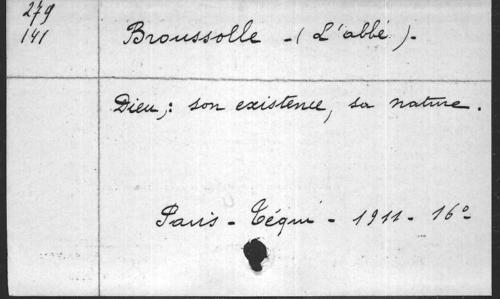 279
141
Broussolle - (L'abbé) -
Dieu,: son existence, sa nature.
Paris - Téqui - 1911 - 16°